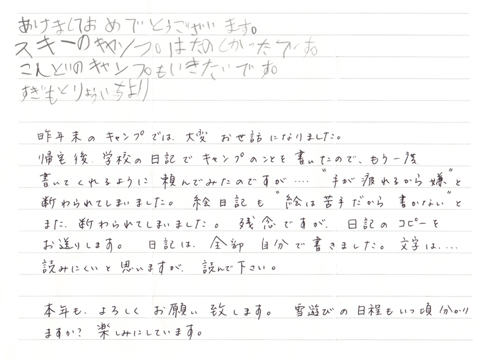 あけましておめでとうございます。
スキーのキャンプはたのしかったです。
こんどのキャンプもいきたいです。
すぎもとりょういちより
昨年末のキャンプでは、大変お世話になりました。
帰宅後、学校の日記でキャンプのことを書いたので、もう一度
書いてくれるように頼んでみたのですが…. "手が疲れるから嫌"と
断わられてしまいました。 絵日記も "絵は苦手だから書かない"と
また、断わられてしまいました。 残念ですが、日記のコピーを
お送りします。 日記は、全部自分で書きました。文字は….
読みにくいと思いますが、読んで下さい。
本年も、よろしくお願い致します。 雪遊びの日程もいつ頃分かり
ますか? 楽しみにしています。